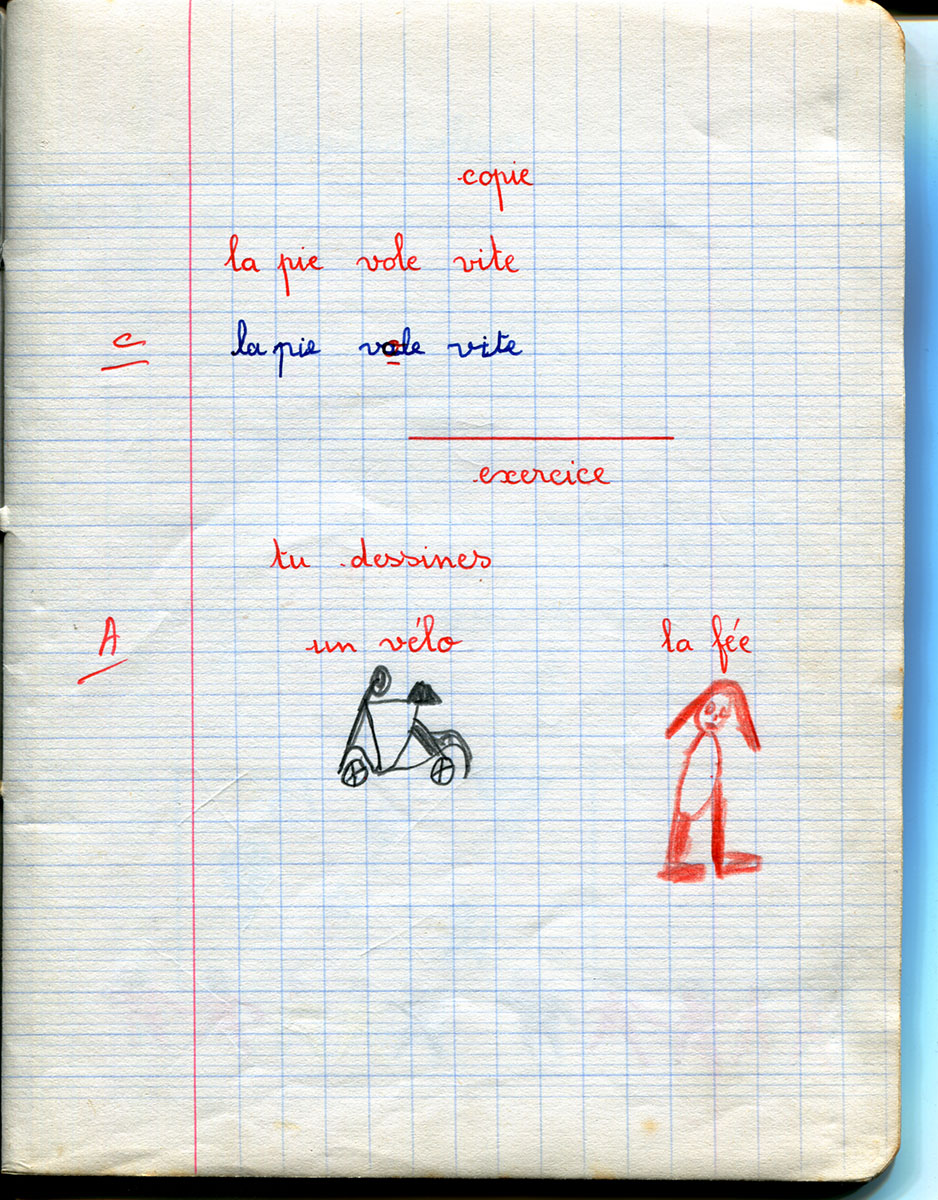 copie
la pie vole vite
C la pie vole vite
exercice
tu dessines
A un vélo la fée